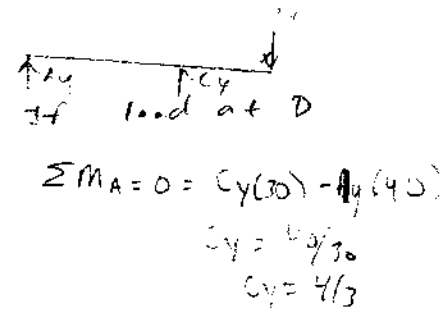 Ay Cy
If load at D
ΣM_A = 0 = Cy(30) - 1(40)
Cy = 40/30
Cy = 4/3